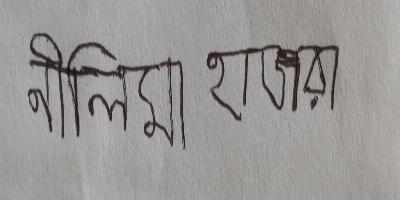 নীলিমা হাজরা